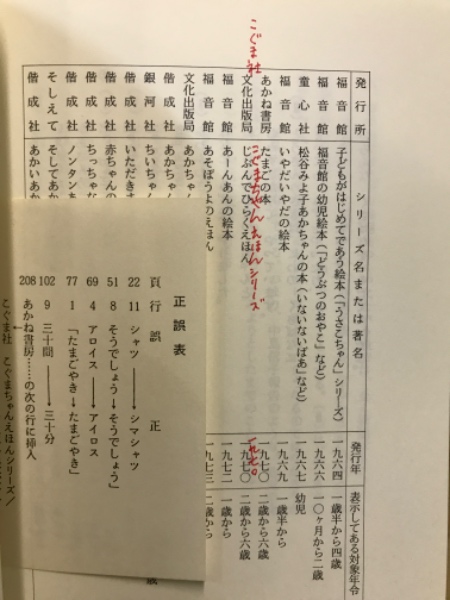 発行所 シリーズ名または著名 発行年 表示してある対象年令
福音館 子どもがはじめてであう絵本(「うさこちゃん」シリーズ) 一九六四 一歳半から四歳
福音館 福音館の幼児絵本(「どうぶつのおやこ」など) 一九六六 一〇ヶ月から二歳
童心社 松谷みよ子あかちゃんの本(いないないばあ」など) 一九六七 幼児
福音館 いやだいやだの絵本 一九六九 一歳半から
あかね書房 たまごの本 一九七〇 二歳から六歳
こぐま社 こぐまちゃんえほんシリーズ 一九七〇
文化出版局 じぶんでひらくえほん 一九七〇 二歳から六歳
福音館 あーんあんの絵本 一九七二 一歳から
福音館 あそぼうよのえほん 一九七三 二歳から
文化出版局 あかちゃん
偕成社 あかちゃ
銀河社 ちいちゃん
偕成社 いただきま
偕成社 赤ちゃんの
偕成社 ちっちゃな
偕成社 ノンタンあ
そしえて
偕成社 あかいあか
歳
正誤表
頁 行 誤 正
22 11 シャツ→シマシャツ
51 8 そうでしょう→そうでしょう」
69 4 アロイス→アイロス
77 1 「たまごやき→たまごやき」
102 9 三十間→三十分
208 あかね書房……の次の行に挿入
こぐま社 こぐまちゃんえほんシリーズ/